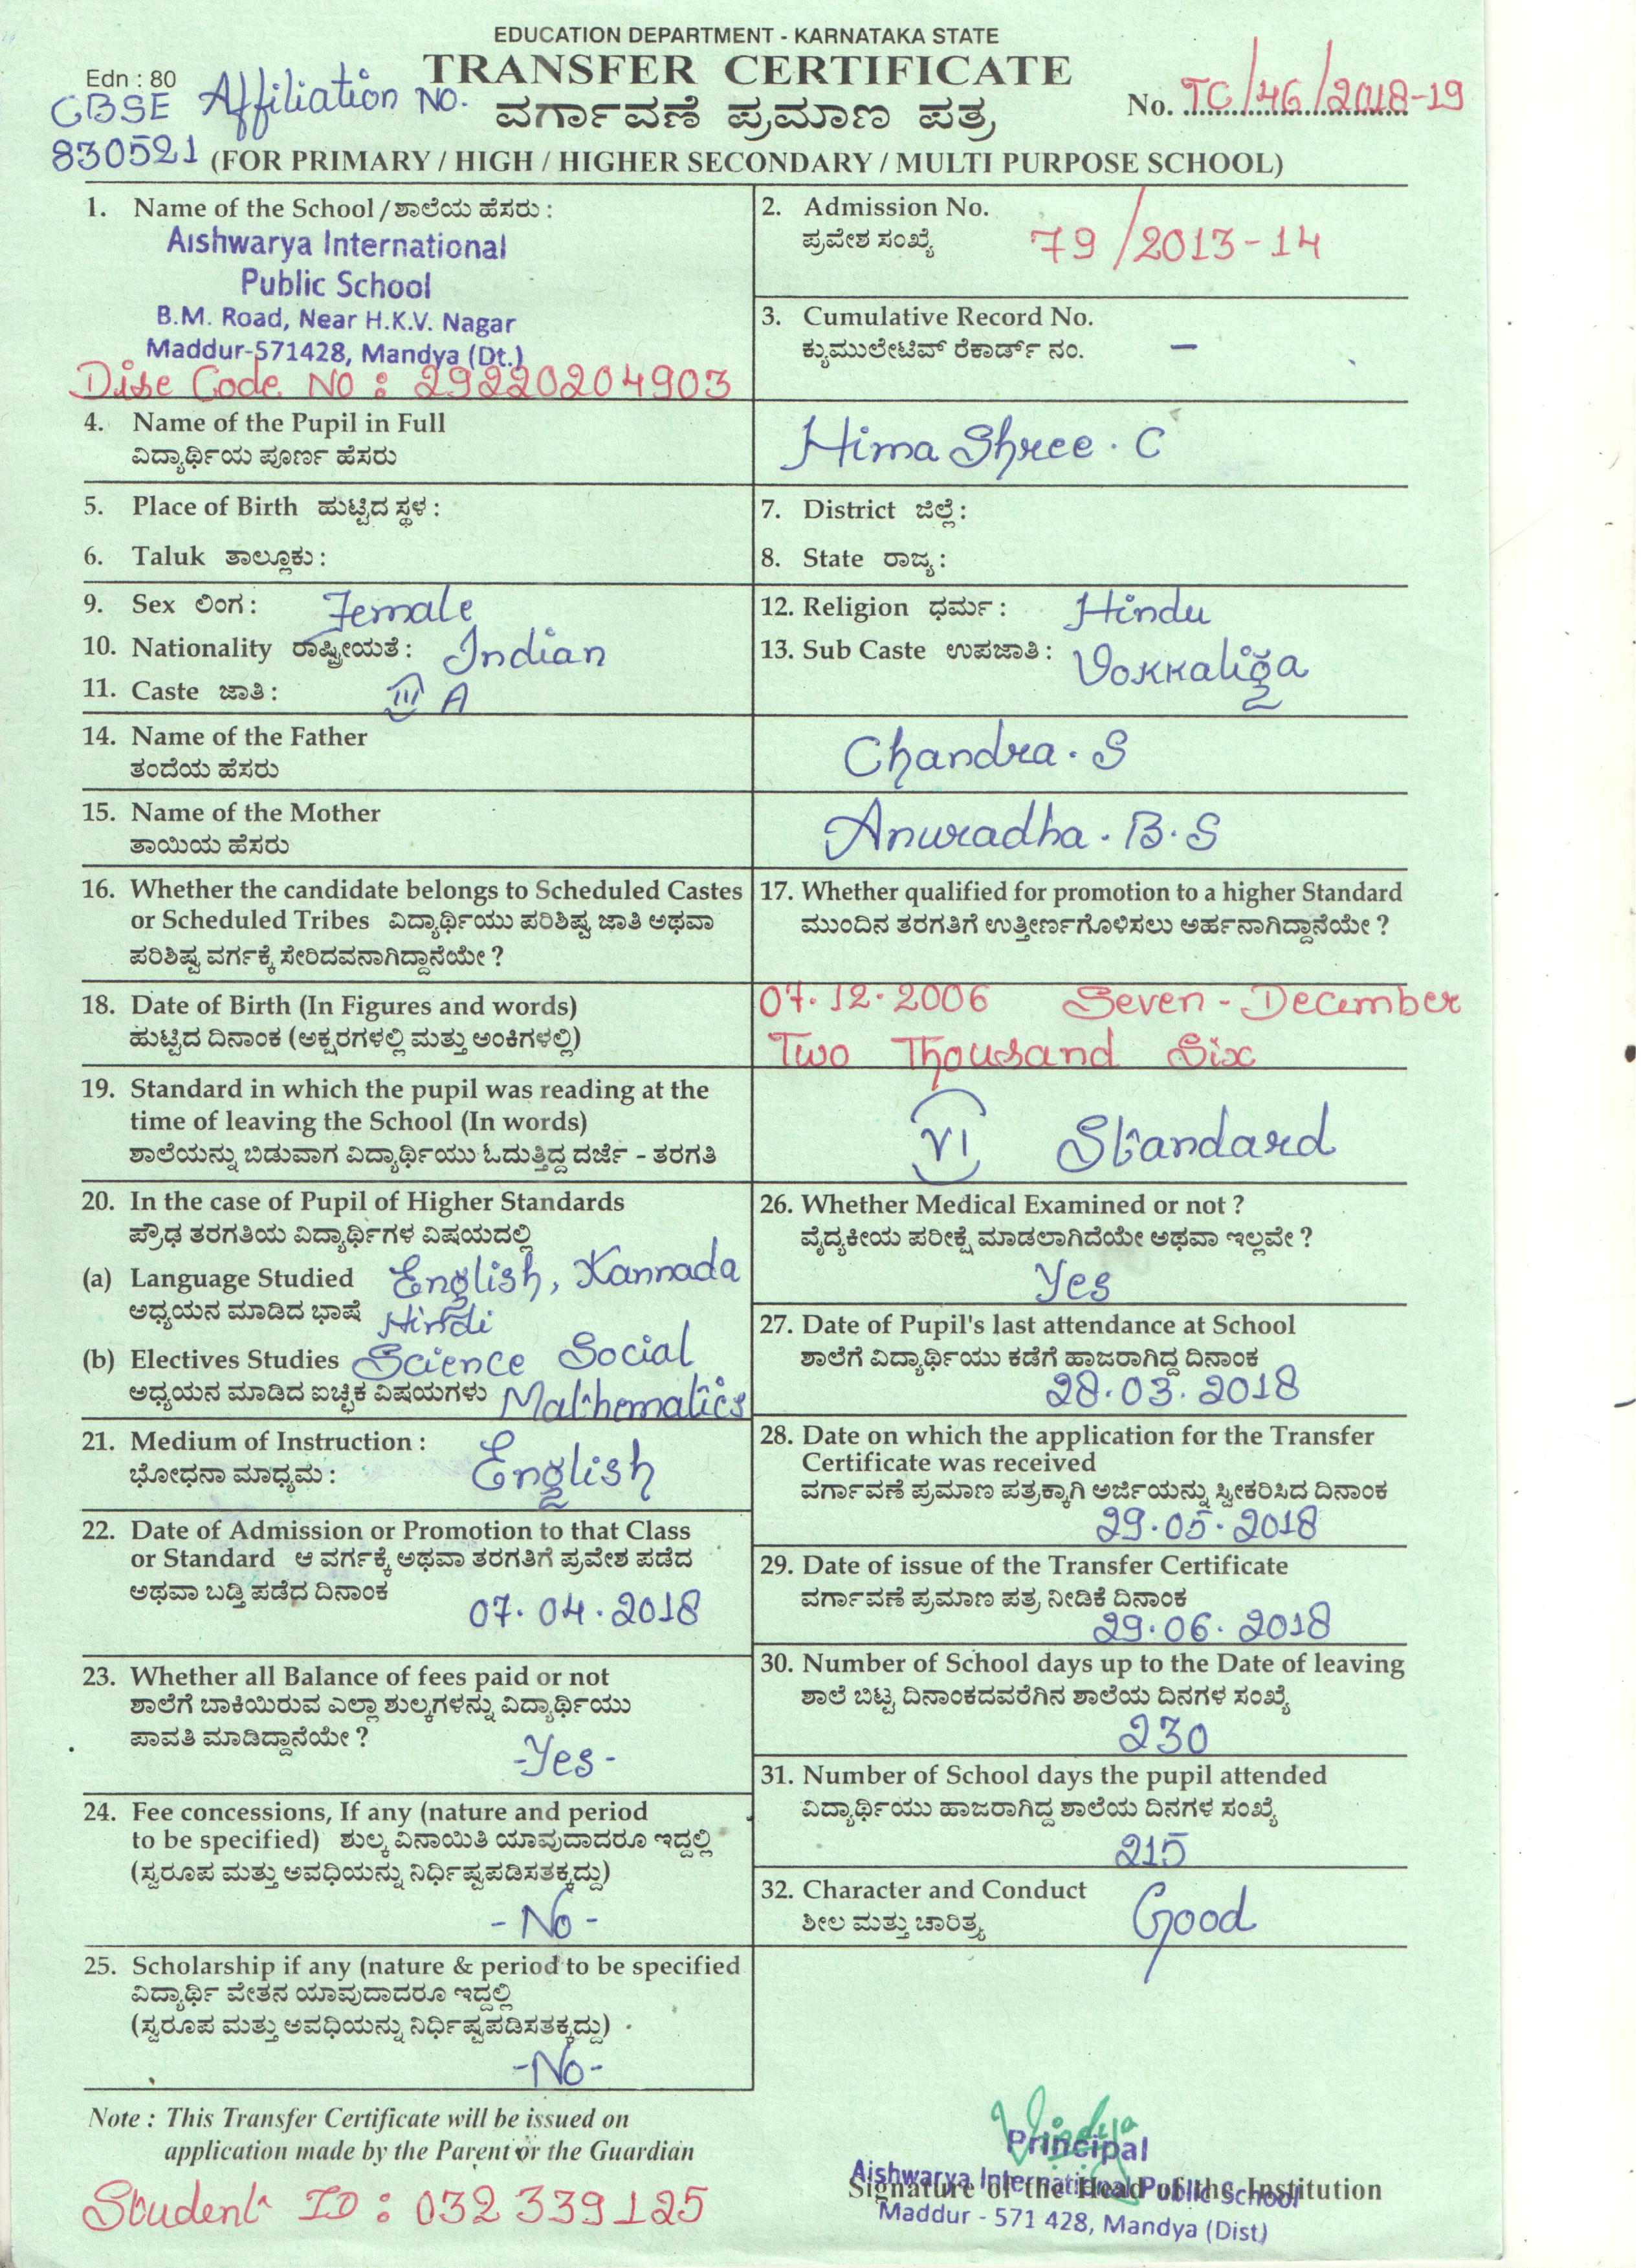 EDUCATION DEPARTMENT - KARNATAKA STATE
Edn : 80
TRANSFER CERTIFICATE
CBSE Affiliation No.
830521
ವರ್ಗಾವಣೆ ಪ್ರಮಾಣ ಪತ್ರ
No. TC/46/2018-19
(FOR PRIMARY / HIGH / HIGHER SECONDARY / MULTI PURPOSE SCHOOL)
1. Name of the School / ಶಾಲೆಯ ಹೆಸರು :
Aishwarya International
Public School
B.M. Road, Near H.K.V. Nagar
Maddur-571428, Mandya (Dt.)
Dise Code No : 29220204903
2. Admission No.
ಪ್ರವೇಶ ಸಂಖ್ಯೆ 79/2013-14
3. Cumulative Record No.
ಕ್ಯುಮುಲೇಟಿವ್ ರೆಕಾರ್ಡ್ ನಂ. -
4. Name of the Pupil in Full
ವಿದ್ಯಾರ್ಥಿಯ ಪೂರ್ಣ ಹೆಸರು
Hima Shree . C
5. Place of Birth ಹುಟ್ಟಿದ ಸ್ಥಳ :
6. Taluk ತಾಲ್ಲೂಕು :
7. District ಜಿಲ್ಲೆ :
8. State ರಾಜ್ಯ :
9. Sex ಲಿಂಗ : Female
10. Nationality ರಾಷ್ಟ್ರೀಯತೆ : Indian
11. Caste ಜಾತಿ : III A
12. Religion ಧರ್ಮ : Hindu
13. Sub Caste ಉಪಜಾತಿ : Vokkaliga
14. Name of the Father
ತಂದೆಯ ಹೆಸರು
Chandra . S
15. Name of the Mother
ತಾಯಿಯ ಹೆಸರು
Anuradha . B . S
16. Whether the candidate belongs to Scheduled Castes
or Scheduled Tribes ವಿದ್ಯಾರ್ಥಿಯು ಪರಿಶಿಷ್ಟ ಜಾತಿ ಅಥವಾ
ಪರಿಶಿಷ್ಟ ವರ್ಗಕ್ಕೆ ಸೇರಿದವನಾಗಿದ್ದಾನೆಯೇ ?
17. Whether qualified for promotion to a higher Standard
ಮುಂದಿನ ತರಗತಿಗೆ ಉತ್ತೀರ್ಣಗೊಳಿಸಲು ಅರ್ಹನಾಗಿದ್ದಾನೆಯೇ ?
18. Date of Birth (In Figures and words)
ಹುಟ್ಟಿದ ದಿನಾಂಕ (ಅಕ್ಷರಗಳಲ್ಲಿ ಮತ್ತು ಅಂಕಿಗಳಲ್ಲಿ)
07.12.2006 Seven - December
Two Thousand Six
19. Standard in which the pupil was reading at the
time of leaving the School (In words)
ಶಾಲೆಯನ್ನು ಬಿಡುವಾಗ ವಿದ್ಯಾರ್ಥಿಯು ಓದುತ್ತಿದ್ದ ದರ್ಜೆ - ತರಗತಿ
VI Standard
20. In the case of Pupil of Higher Standards
ಪ್ರೌಢ ತರಗತಿಯ ವಿದ್ಯಾರ್ಥಿಗಳ ವಿಷಯದಲ್ಲಿ
(a) Language Studied English, Kannada
ಅಧ್ಯಯನ ಮಾಡಿದ ಭಾಷೆ Hindi
(b) Electives Studies Science Social
ಅಧ್ಯಯನ ಮಾಡಿದ ಐಚ್ಛಿಕ ವಿಷಯಗಳು Mathematics
21. Medium of Instruction :
ಭೋಧನಾ ಮಾಧ್ಯಮ : English
22. Date of Admission or Promotion to that Class
or Standard ಆ ವರ್ಗಕ್ಕೆ ಅಥವಾ ತರಗತಿಗೆ ಪ್ರವೇಶ ಪಡೆದ
ಅಥವಾ ಬಡ್ತಿ ಪಡೆದ ದಿನಾಂಕ
07.04.2018
23. Whether all Balance of fees paid or not
ಶಾಲೆಗೆ ಬಾಕಿಯಿರುವ ಎಲ್ಲಾ ಶುಲ್ಕಗಳನ್ನು ವಿದ್ಯಾರ್ಥಿಯು
ಪಾವತಿ ಮಾಡಿದ್ದಾನೆಯೇ ?
-Yes-
24. Fee concessions, If any (nature and period
to be specified) ಶುಲ್ಕ ವಿನಾಯಿತಿ ಯಾವುದಾದರೂ ಇದ್ದಲ್ಲಿ
(ಸ್ವರೂಪ ಮತ್ತು ಅವಧಿಯನ್ನು ನಿರ್ಧಿಷ್ಟಪಡಿಸತಕ್ಕದ್ದು)
-No-
25. Scholarship if any (nature & period to be specified
ವಿದ್ಯಾರ್ಥಿ ವೇತನ ಯಾವುದಾದರೂ ಇದ್ದಲ್ಲಿ
(ಸ್ವರೂಪ ಮತ್ತು ಅವಧಿಯನ್ನು ನಿರ್ಧಿಷ್ಟಪಡಿಸತಕ್ಕದ್ದು)
-No-
26. Whether Medical Examined or not ?
ವೈದ್ಯಕೀಯ ಪರೀಕ್ಷೆ ಮಾಡಲಾಗಿದೆಯೇ ಅಥವಾ ಇಲ್ಲವೇ ?
Yes
27. Date of Pupil's last attendance at School
ಶಾಲೆಗೆ ವಿದ್ಯಾರ್ಥಿಯು ಕಡೆಗೆ ಹಾಜರಾಗಿದ್ದ ದಿನಾಂಕ
28.03.2018
28. Date on which the application for the Transfer
Certificate was received
ವರ್ಗಾವಣೆ ಪ್ರಮಾಣ ಪತ್ರಕ್ಕಾಗಿ ಅರ್ಜಿಯನ್ನು ಸ್ವೀಕರಿಸಿದ ದಿನಾಂಕ
29.05.2018
29. Date of issue of the Transfer Certificate
ವರ್ಗಾವಣೆ ಪ್ರಮಾಣ ಪತ್ರ ನೀಡಿಕೆ ದಿನಾಂಕ
29.06.2018
30. Number of School days up to the Date of leaving
ಶಾಲೆ ಬಿಟ್ಟ ದಿನಾಂಕದವರೆಗಿನ ಶಾಲೆಯ ದಿನಗಳ ಸಂಖ್ಯೆ
230
31. Number of School days the pupil attended
ವಿದ್ಯಾರ್ಥಿಯು ಹಾಜರಾಗಿದ್ದ ಶಾಲೆಯ ದಿನಗಳ ಸಂಖ್ಯೆ
215
32. Character and Conduct
ಶೀಲ ಮತ್ತು ಚಾರಿತ್ರ್ಯ Good
Note : This Transfer Certificate will be issued on
application made by the Parent or the Guardian
Student ID : 032339125
Vindya
Principal
Aishwarya International Public School
Signature of the Head of the Institution
Maddur - 571 428, Mandya (Dist)